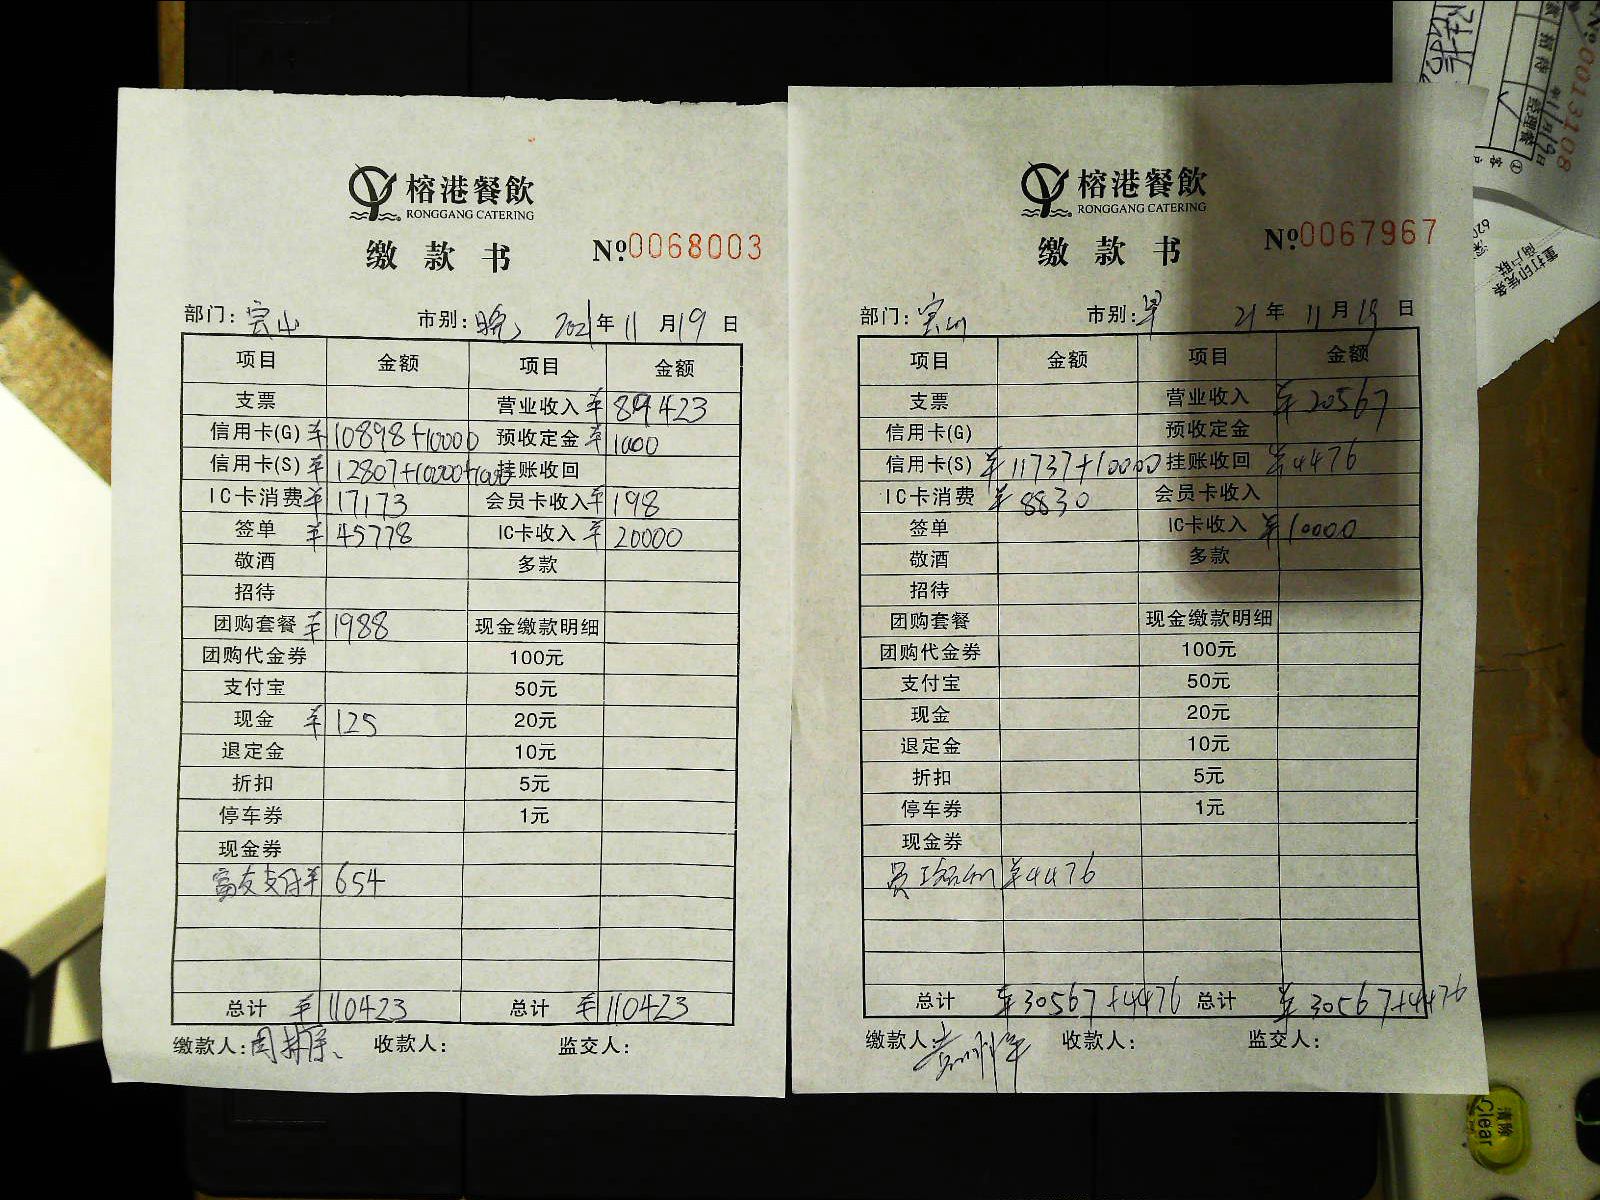 榕港餐飲
RONGGANG CATERING
缴款书 №0068003
部门: 宝山 市别: 晚 2021年11月19日
项目 金额 项目 金额
支票 营业收入 ¥89423
信用卡(G) ¥10898+10000 预收定金 ¥1000
信用卡(S) ¥12807+10000+1000 挂账收回
IC卡消费 ¥17173 会员卡收入 ¥198
签单 ¥45778 IC卡收入 ¥20000
敬酒 多款
招待
团购套餐 ¥1988 现金缴款明细
团购代金券 100元
支付宝 50元
现金 ¥125 20元
退定金 10元
折扣 5元
停车券 1元
现金券
富友支付 ¥654
总计 ¥110423 总计 ¥110423
缴款人: 收款人: 监交人:
榕港餐飲
RONGGANG CATERING
缴款书 №0067967
部门: 宝山 市别: 早 21年11月19日
项目 金额 项目 金额
支票 营业收入 ¥20567
信用卡(G) 预收定金
信用卡(S) ¥11737+10000 挂账收回 ¥4476
IC卡消费 ¥8830 会员卡收入
签单 IC卡收入 ¥10000
敬酒 多款
招待
团购套餐 现金缴款明细
团购代金券 100元
支付宝 50元
现金 20元
退定金 10元
折扣 5元
停车券 1元
现金券
¥4476
总计 ¥30567+4476 总计 ¥30567+4476
缴款人: 收款人: 监交人:
№0013108
招待
重打印凭条
商户联
清除
Clear